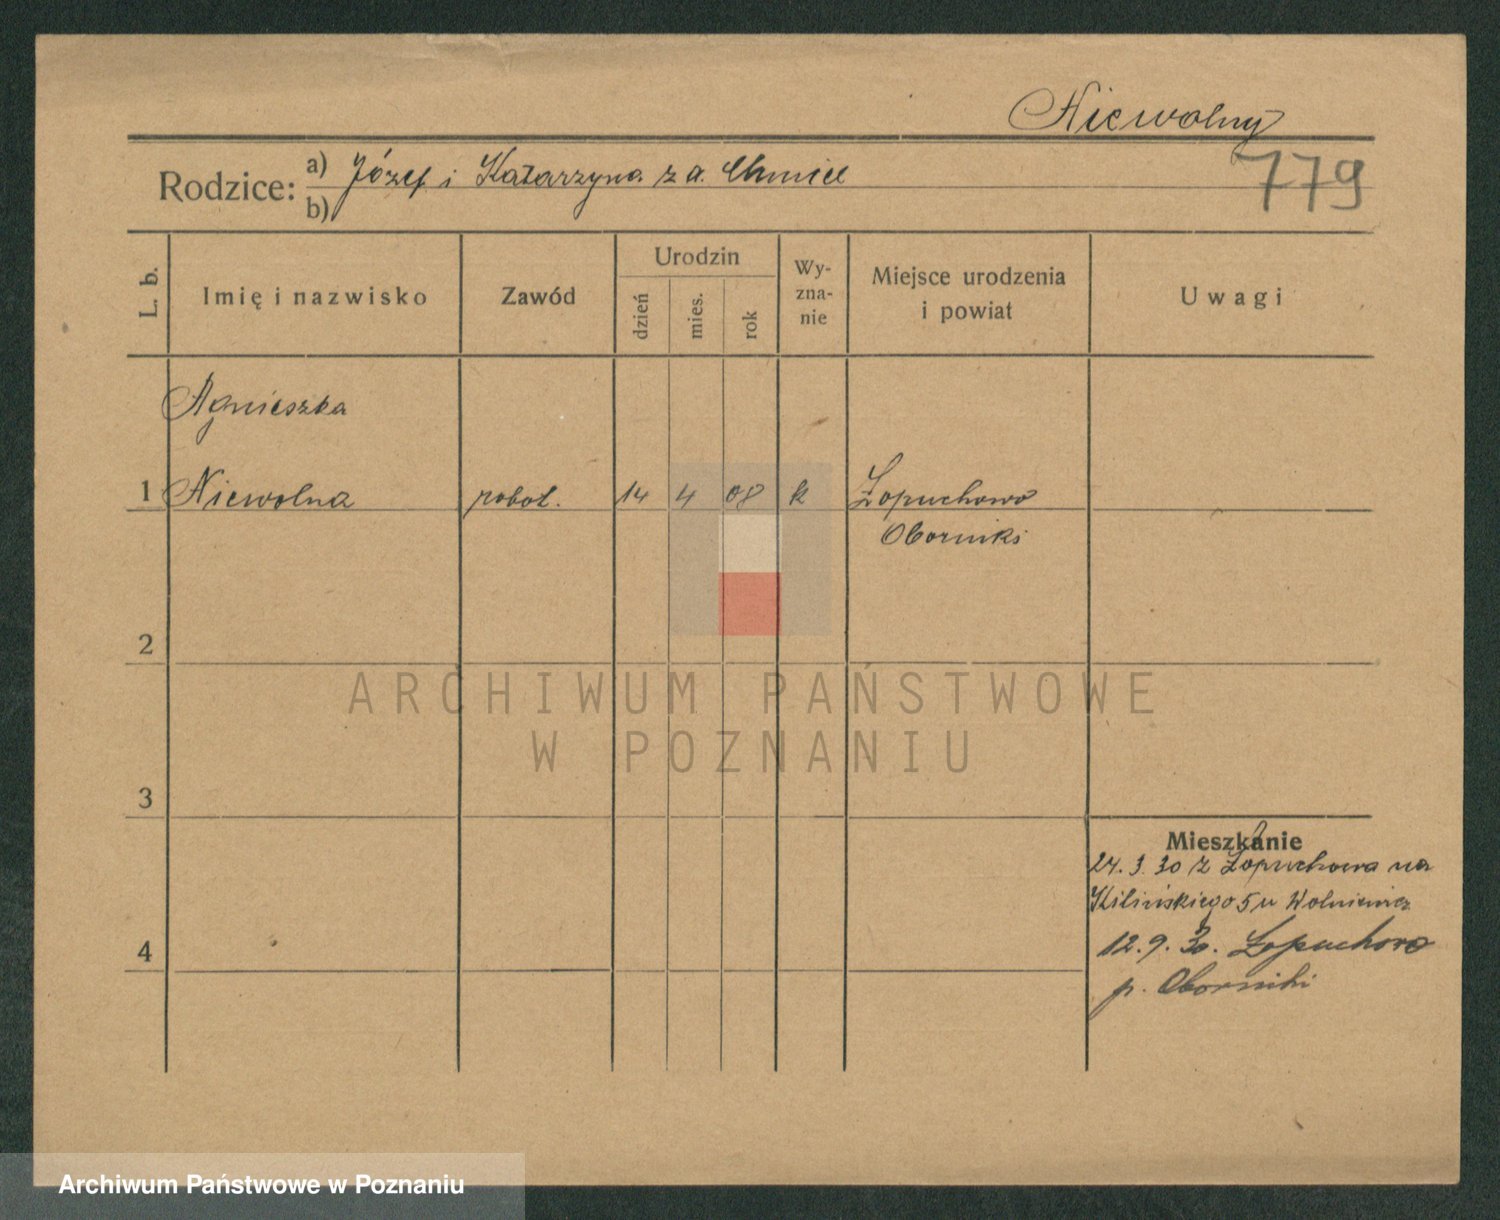 Niewolny
779
Rodzice: a) Józef i Katarzyna z d. Chmiel
b)
L. b.
Imię i nazwisko
Zawód
Urodzin
dzień
mies.
rok
Wy-
zna-
nie
Miejsce urodzenia
i powiat
Uwagi
Agnieszka
1 Niewolna robot. 14 4 08 k Łopuchowo
Oborniki
2
ARCHIWUM PAŃSTWOWE
W POZNANIU
3
Mieszkanie
24.3.30 z Łopuchowa na
Kilińskiego 5 u Wolniewicz
12.9.30. Łopuchowo
4
p. Oborniki
Archiwum Państwowe w Poznaniu